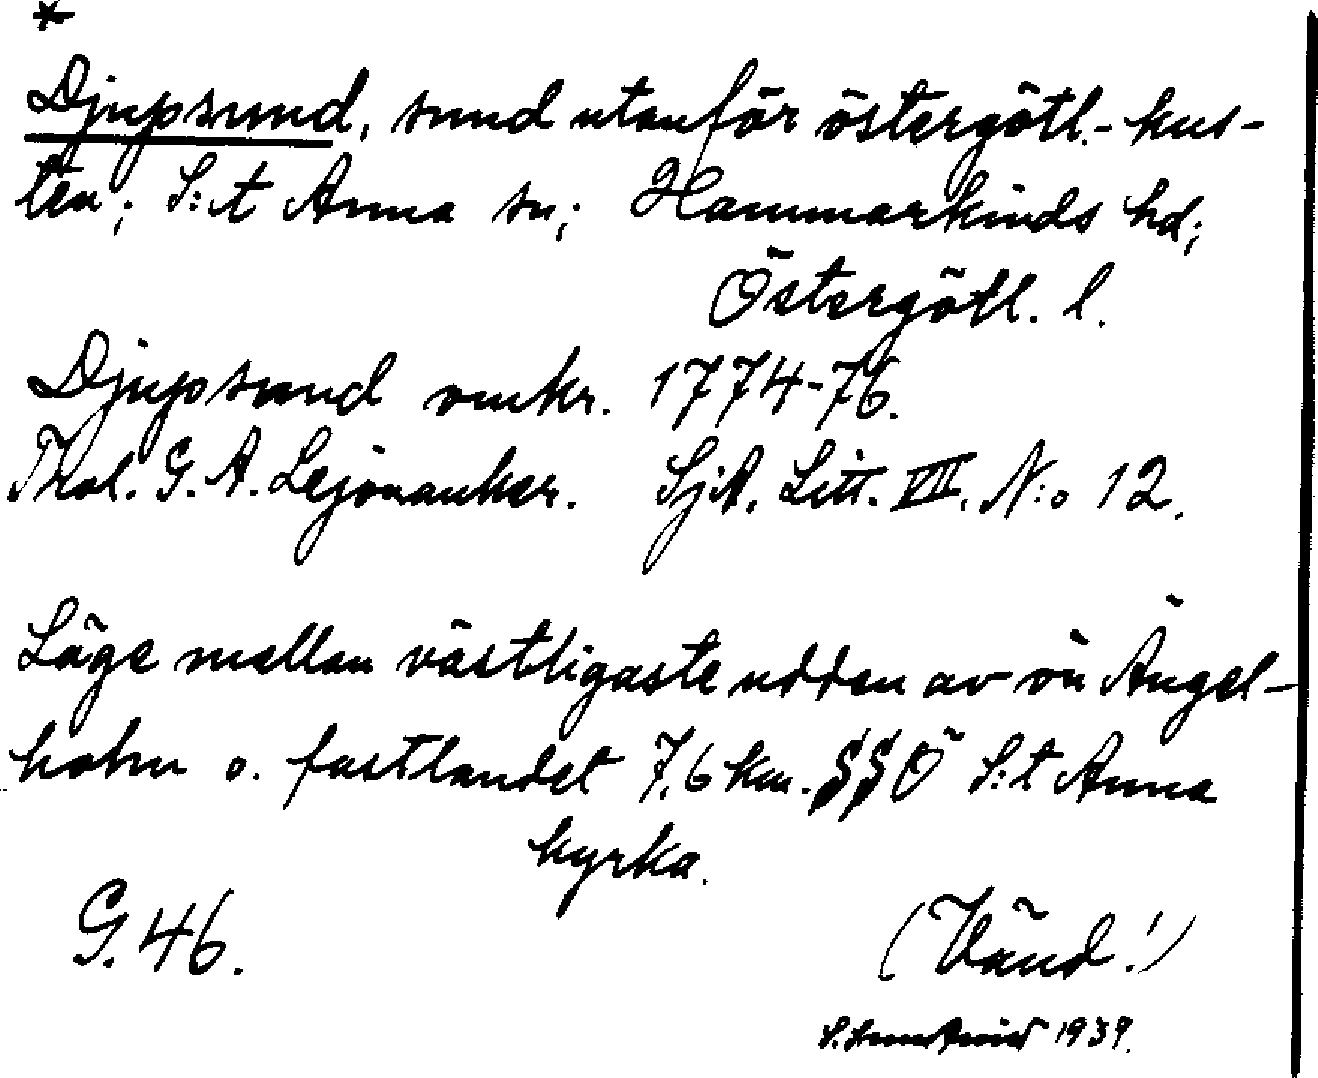 *
Djupsund, sund utanför östergötl.-kus-
ten; S:t Anna sn; Hammarkinds hd;
Östergötl. l.
Djupsund omkr. 1774-76.
Thol. G. A. Lejonanker. SjA. Litt. VIII. N:o 12.
Läge mellan västligaste udden av ön Ängel-
holm o. fastlandet 7,6 km. SSÖ S:t Anna
kyrka.
G. 46.
(Vänd!)
1939.